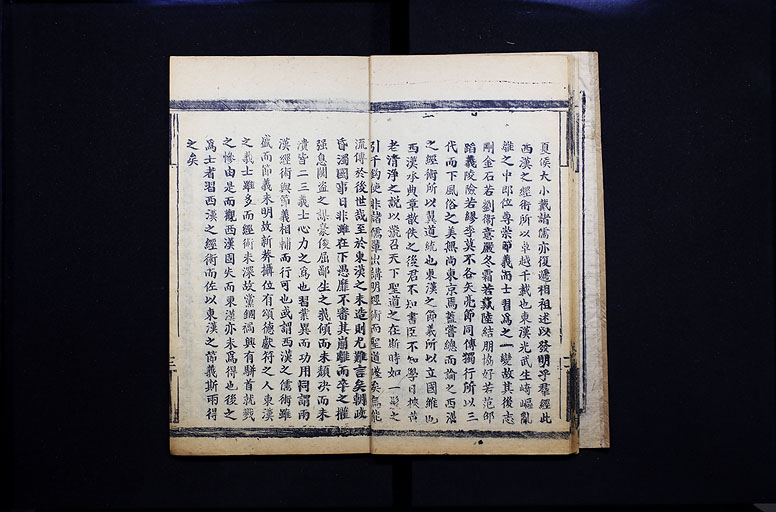 夏侯大小戴諸儒亦復遞相祖述以發明乎羣經此
西漢之經術所以卓越千載也東漢光武生崎嶇亂
離之中即位專崇節義而士習爲之一變故其後志
剛金石若劉衛意嚴冬霜若戴陸結朋協好若范郅
蹈義陵險若繆李莫不各矢亮節同傳獨行所以三
代而下風俗之美無尚東京焉蓋嘗總而論之西漢
之經術所以翼道統也東漢之節義所以立國維也
西漢承典章散佚之後君不知書臣不知學日挾黃
老清淨之說以號召天下聖道之在斯時如一髮之
引千鈞使非諸儒輩出講明經術而聖道遂矣烏能
流傳於後世哉至於東漢之末造則尤難言矣朝政
昏濁國事日非雖在下愚靡不審其崩離而卒之權
强息闚盜之謀豪俊屈鄙生之議傾而未頹決而未
潰皆二三義士心力之爲也習業異而功用同謂兩
漢經術與節義相輔而行可也或謂西漢之儒術雖
盛而節義未明故新莽攝位有頌德獻符之人東漢
之義士雖多而經術未深故黨錮禍興有駢首就戮
之慘由是而觀西漢固失而東漢亦未爲得也後之
爲士者習西漢之經術而佐以東漢之節義斯兩得
之矣